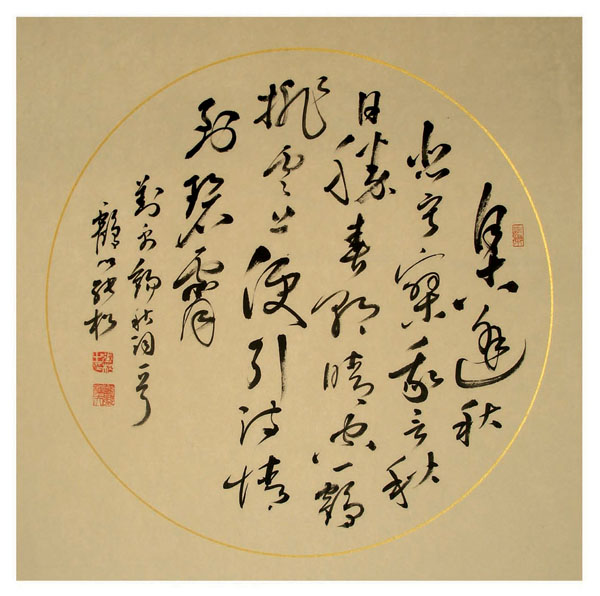 自古逢秋
悲寂寥我言秋
日勝春朝晴空一鶴
排雲上便引詩情
到碧霄
劉禹錫秋詞一首